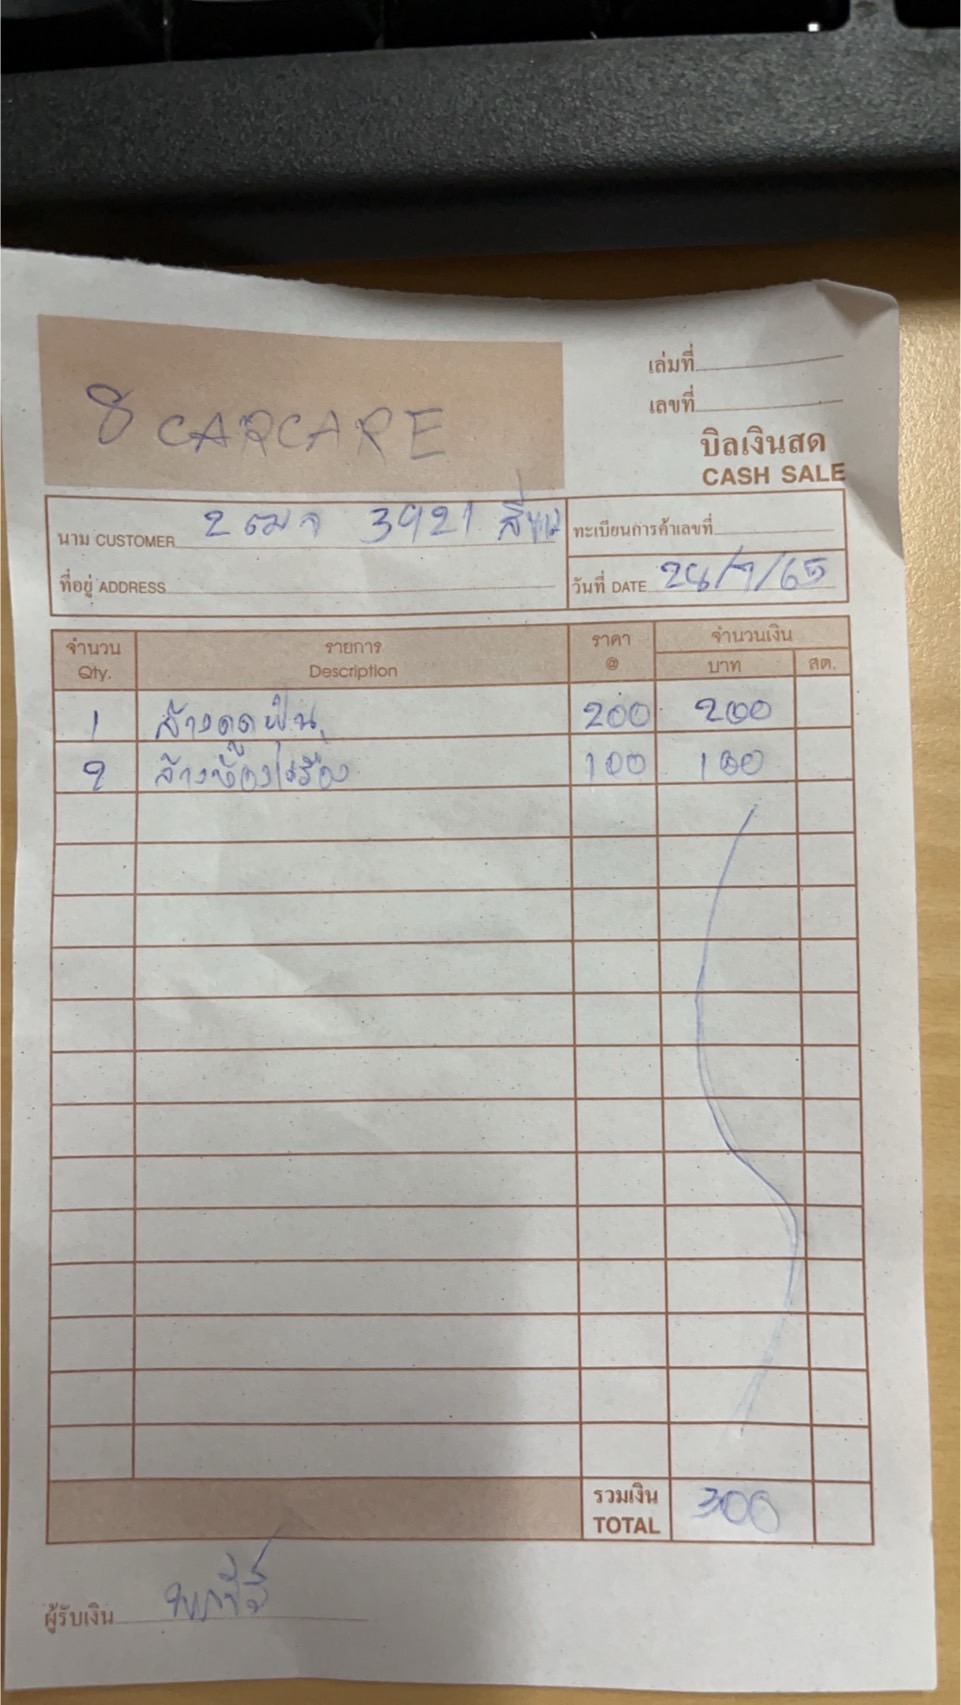 8 CARCARE
เล่มที่
เลขที่
บิลเงินสด
CASH SALE
นาม CUSTOMER 2ฒจ 3921
ที่อยู่ ADDRESS
ทะเบียนการค้าเลขที่
วันที่ DATE /7/65
จำนวน รายการ ราคา จำนวนเงิน
Qty. Description @ บาท สต.
1 ล้างดูดฝุ่น 200 200
2 ล้างห้องเครื่อง 100 100
รวมเงิน 300
TOTAL
ผู้รับเงิน